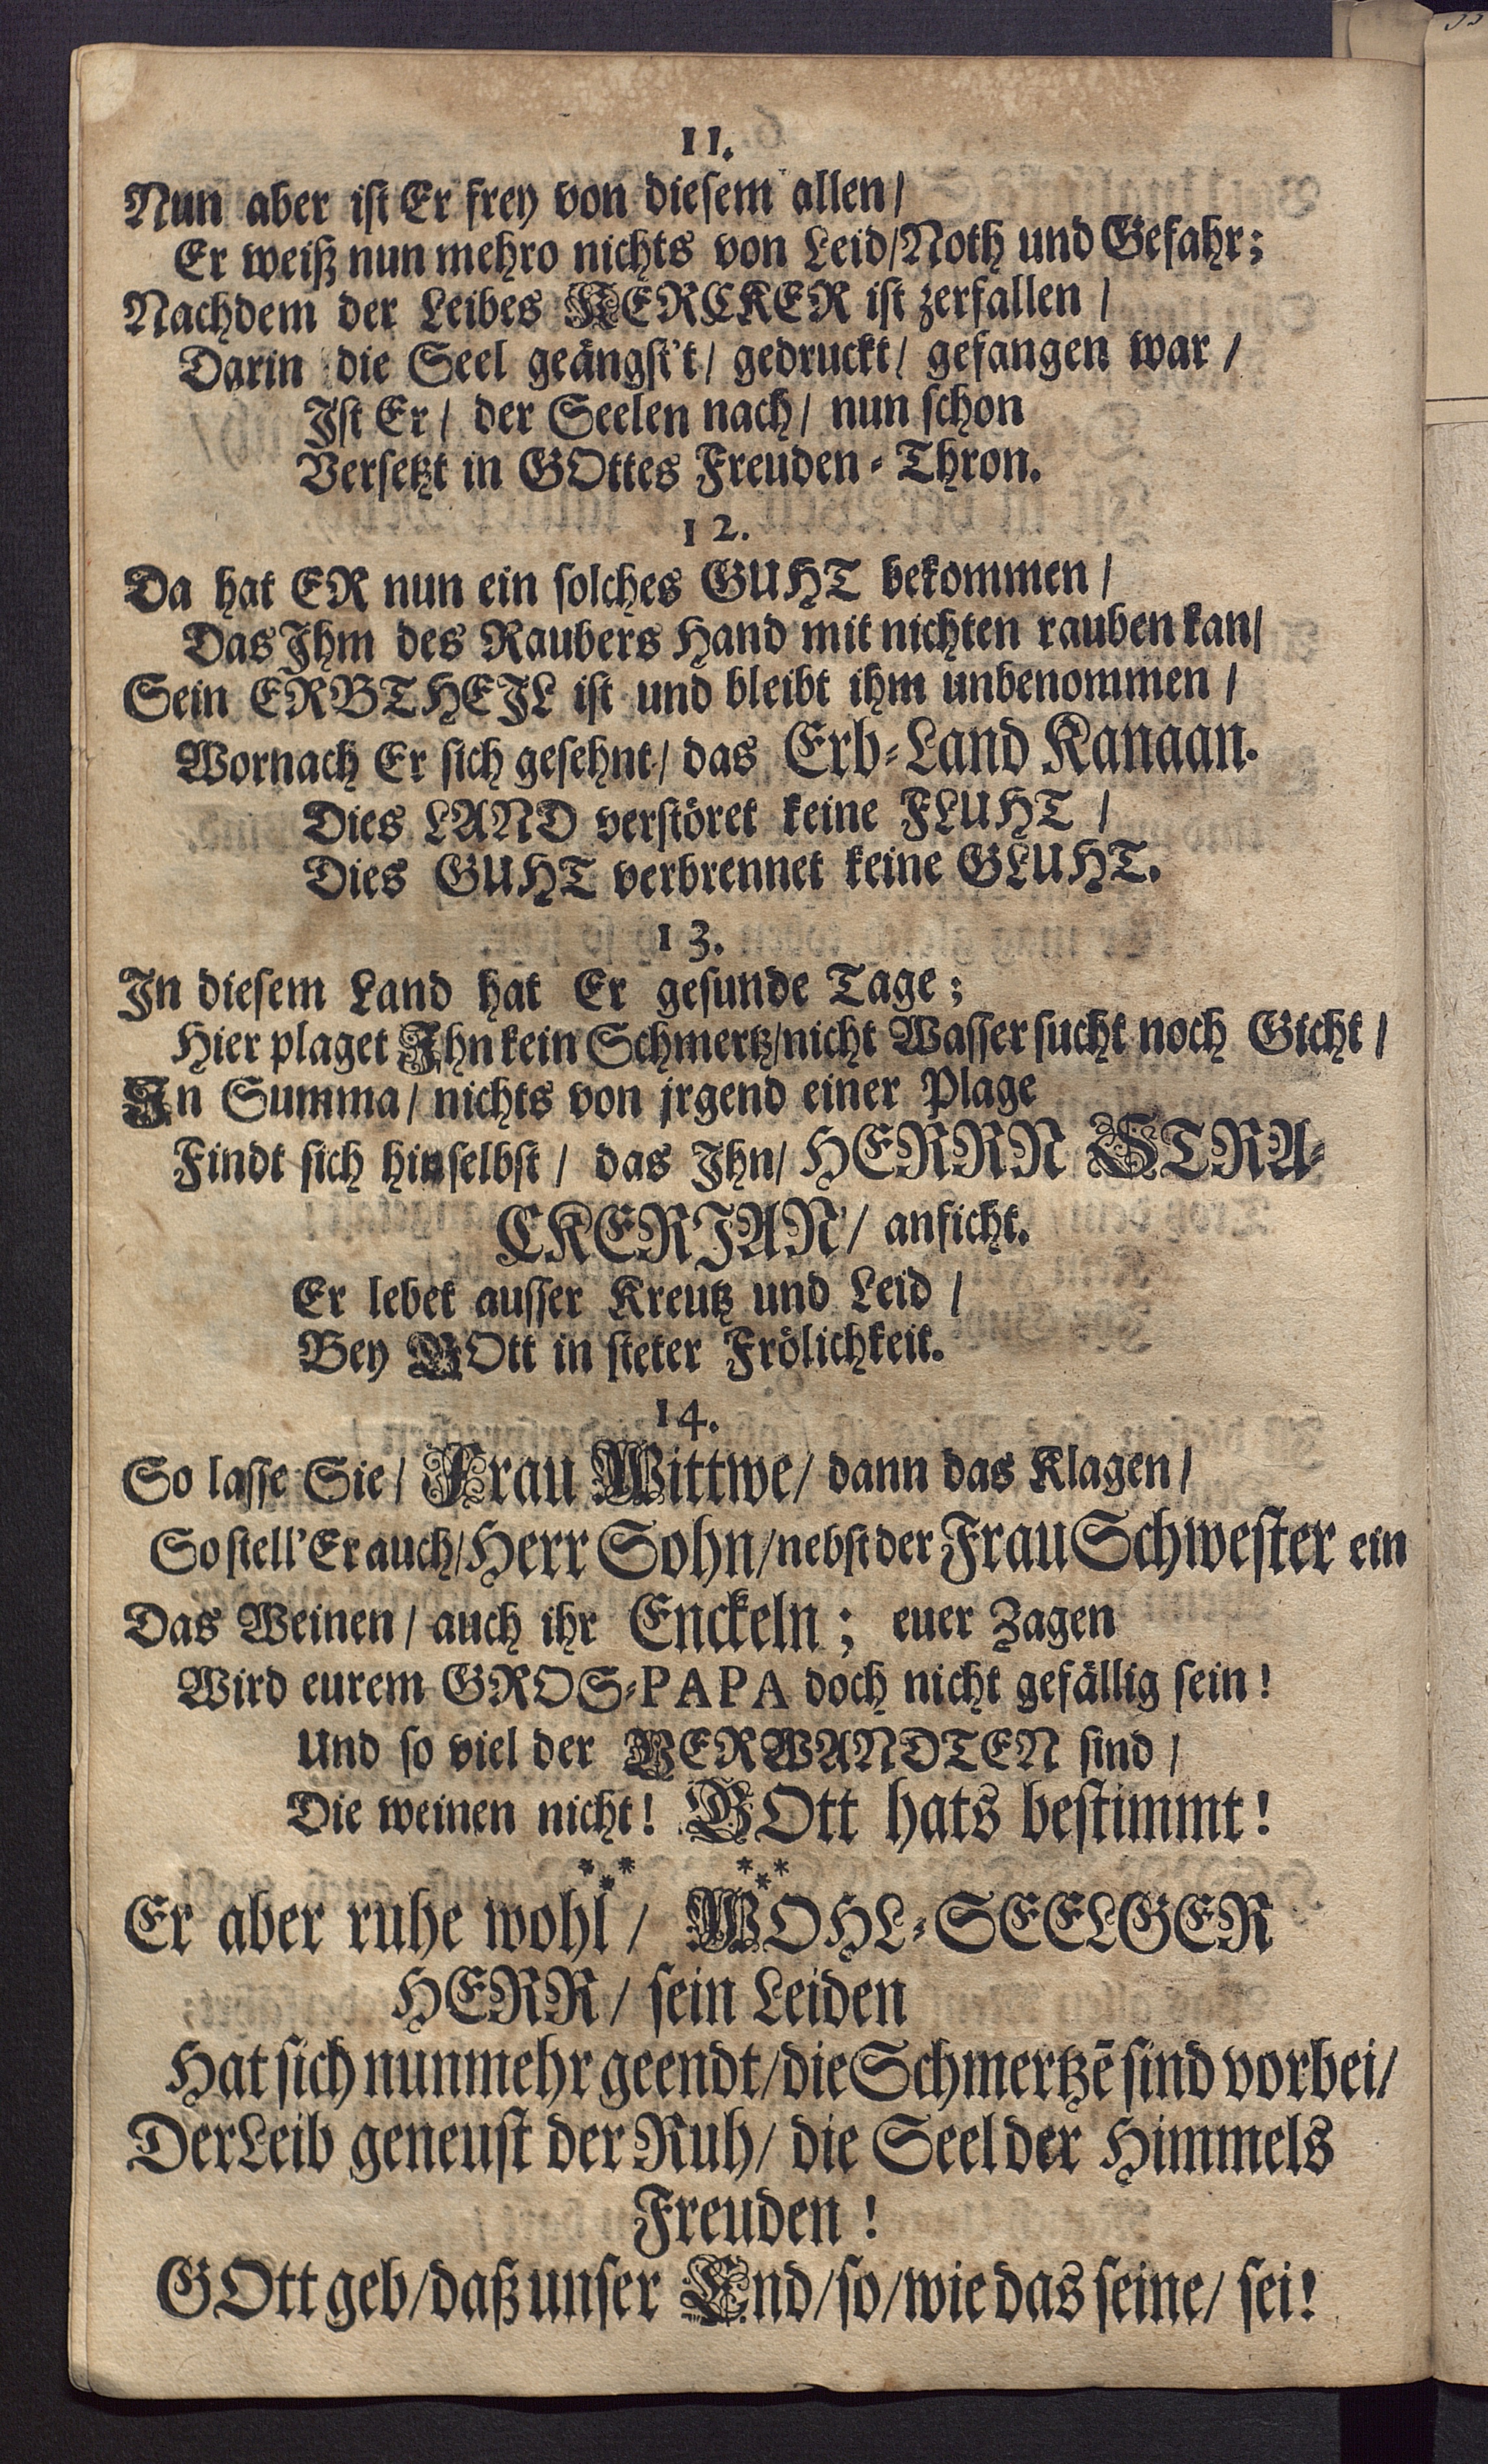 11.
Nun aber iſt Er frey von dieſem allen/
Er weiß nun mehro nichts von Leid/Noth und Gefahr;
Nachdem der Leibes KERCKER iſt zerfallen /
Darin die Seel geängſt't/ gedruckt/ gefangen war /
Iſt Er/ der Seelen nach/ nun ſchon
Verſetzt in GOttes Freuden-Thron.
12.
Da hat ER nun ein ſolches GUHT bekommen /
Das Ihm des Raubers Hand mit nichten rauben kan/
Sein ERBTHEIL iſt und bleibt ihm unbenommen /
Wornach Er ſich geſehnt/ das Erb-Land Kanaan.
Dies LAND verſtöret keine FLUHT /
Dies GUHT verbrennet keine GLUHT.
13.
In dieſem Land hat Er geſunde Tage;
Hier plaget Ihn kein Schmertz/nicht Waſſerſucht noch Gicht /
In Summa/ nichts von jrgend einer Plage
Findt ſich hinſelbſt / das Ihn/ HERRN STRA-
CKERJAN/ anficht.
Er lebet auſſer Kreutz und Leid /
Bey GOtt in ſteter Frölichkeit.
14.
So laſſe Sie/ Frau Wittwe/ dann das Klagen/
So ſtell' Er auch/Herr Sohn/nebſt der Frau Schweſter ein
Das Weinen/ auch ihr Enckeln; euer Zagen
Wird eurem GROS-PAPA doch nicht gefällig ſein!
Und ſo viel der VERWANDTEN ſind /
Die weinen nicht! GOtt hats beſtimmt!
*** ***
Er aber ruhe wohl/ WOHL-SEELGER
HERR/ ſein Leiden
Hat ſich nunmehr geendt/die Schmertzē ſind vorbei/
Der Leib geneuſt der Ruh/ die Seel der Himmels
Freuden!
GOtt geb/daß unſer End/ſo/wie das ſeine/ ſei!